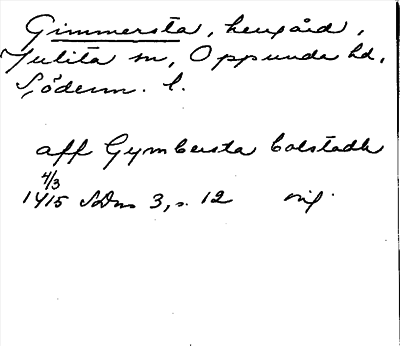 Gimmersta, herrgård,
Julita sn, Oppunda hd,
Söderm. l.
aff Gymbersta bolstadh
4/3
1415 SDns 3, s. 12 orig.